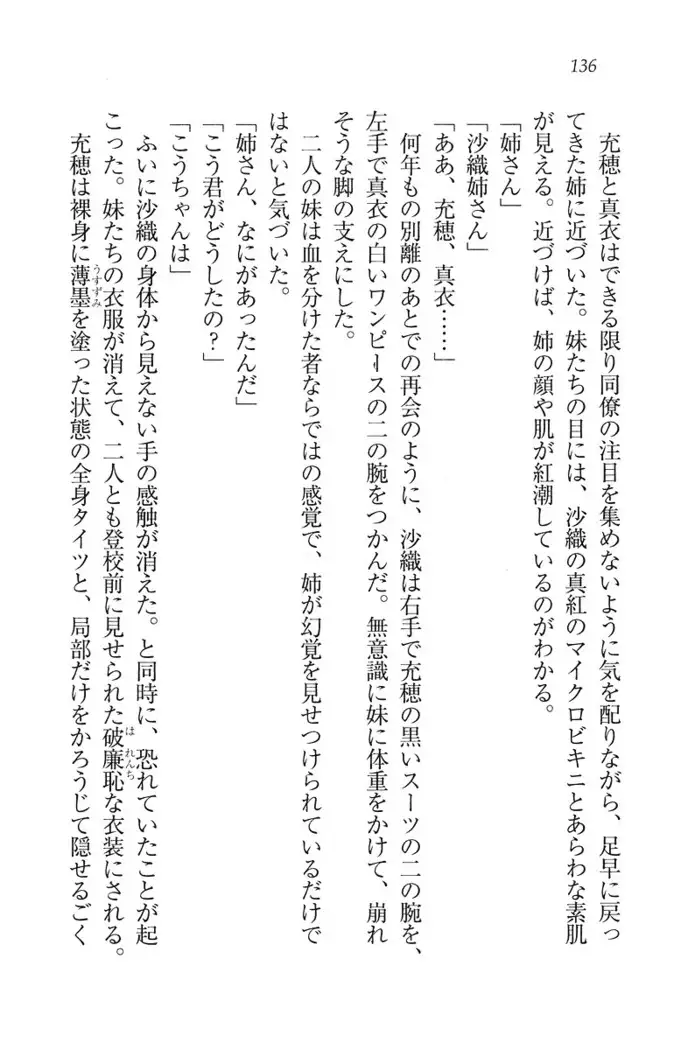 136
充穂と真衣はできる限り同僚の注目を集めないように気を配りながら、足早に戻っ
てきた姉に近づいた。妹たちの目には、沙織の真紅のマイクロビキニとあらわな素肌
が見える。近づけば、姉の顔や肌が紅潮しているのがわかる。
「姉さん」
「沙織姉さん」
「ああ、充穂、真衣……」
何年もの別離のあとでの再会のように、沙織は右手で充穂の黒いスーツの二の腕を、
左手で真衣の白いワンピースの二の腕をつかんだ。無意識に妹に体重をかけて、崩れ
そうな脚の支えにした。
二人の妹は血を分けた者ならではの感覚で、姉が幻覚を見せつけられているだけで
はないと気づいた。
「姉さん、なにがあったんだ」
「こう君がどうしたの?」
「こうちゃんは」
ふいに沙織の身体から見えない手の感触が消えた。と同時に、恐れていたことが起
こった。妹たちの衣服が消えて、二人とも登校前に見せられた破廉恥な衣装にされる。
充穂は裸身に薄墨を塗った状態の全身タイツと、局部だけをかろうじて隠せるごく